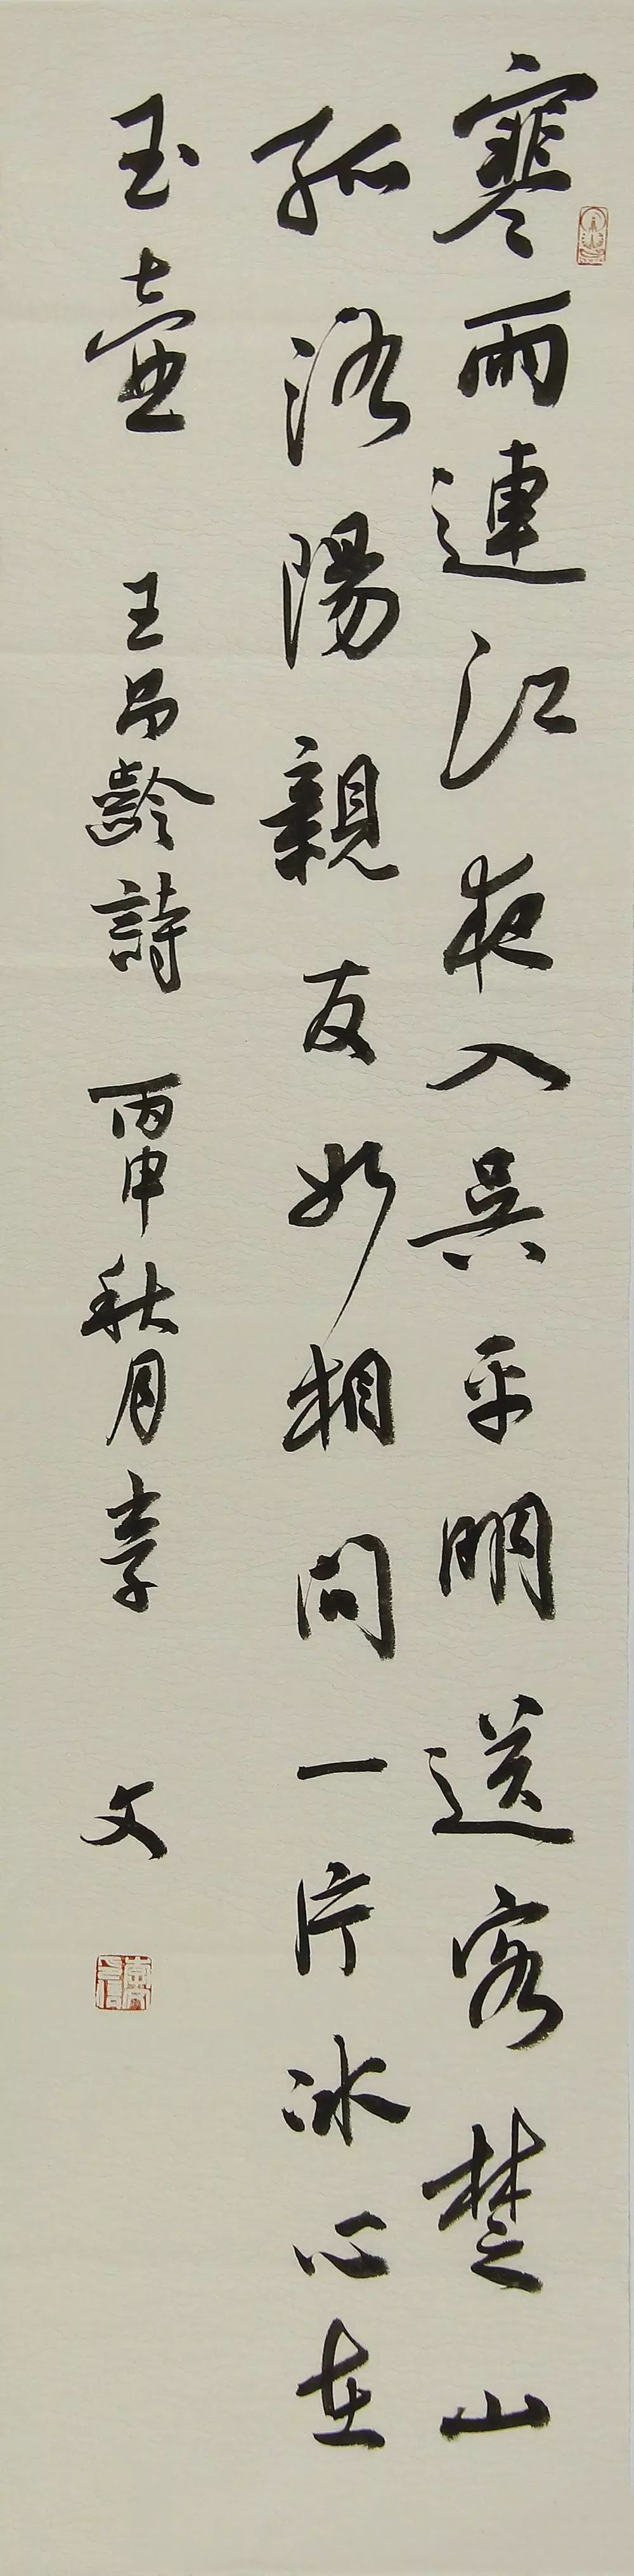 寒雨連江夜入吳平明送客楚山
孤洛陽親友如相問一片冰心在
玉壺 王昌齡詩 丙申秋月 李 文